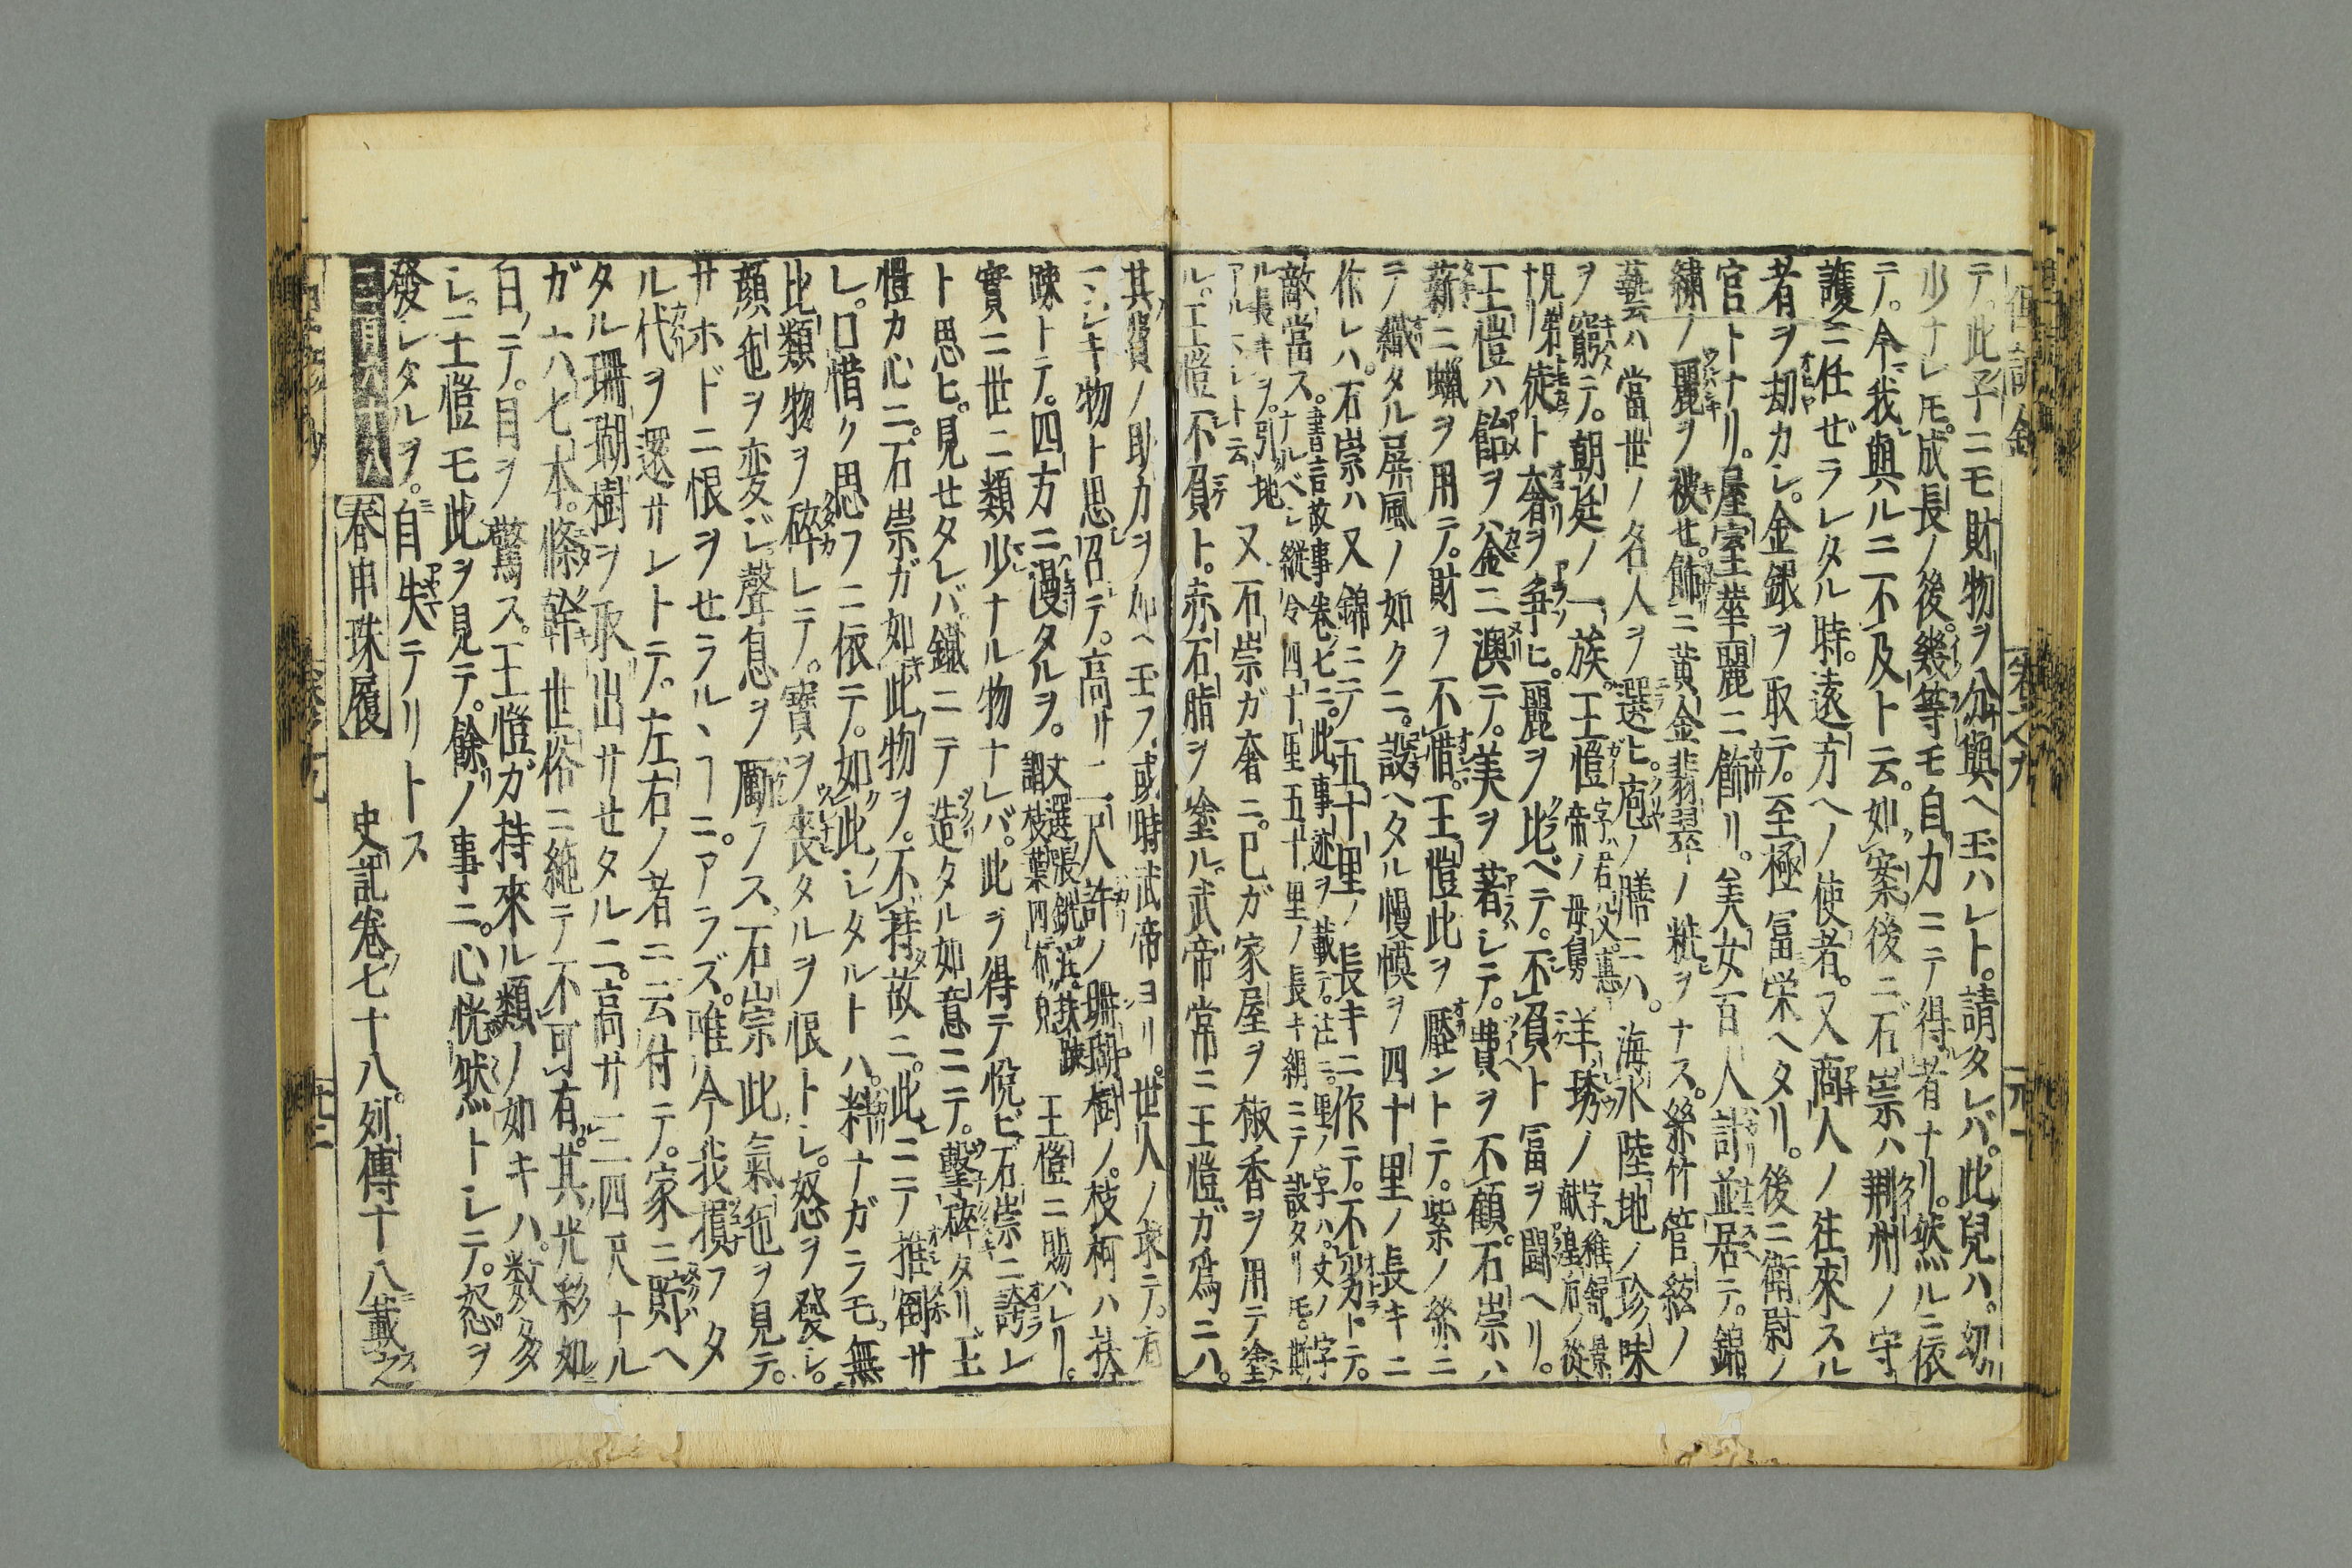 テ。此子ニモ財物ヲ分與ヘ玉ハレト。請タレバ。此兒ハ。幼
少ナレ𪜈。成長ノ後。幾等モ自力ニテ得者ナリ。然ルニ依
テ。今我與ルニ不及ト云。如案後ニ石崇ハ荆州ノ守
護ニ任ゼラレタル時。遠方ヘノ使者。又商人ノ往來スル
者ヲ刧カレ。金銀ヲ取テ。至極冨栄ヘタリ。後ニ衛尉ノ
官トナリ。屋室華麗ニ飾リ。美女百人計並居テ。錦
繍ノ麗ヲ被せ。飾ニ黄金翡翠ノ粧ヲナス。絲竹管絃ノ
藝ハ當世ノ名人ヲ選ヒ。庖ノ膳ニハ。海水陸地ノ珍味
ヲ窮テ。朝廷ノ一族。王愷字ハ君夫惠帝ノ母舅羊琇ノ字稚舒。景献皇后ノ從
兄弟徒ト奢ヲ争ヒ。麗ヲ比ベテ。不負ト冨ヲ鬪ヘリ。
王愷ハ飴ヲ釜ニ澳テ。美ヲ著シテ。費ヲ不顧。石崇ハ
薪ニ蝋ヲ用テ。財ヲ不惜。王愷此ヲ壓ントテ。紫ノ絲ニ
テ織タル屏風ノ如クニ。設ヘタル慢幕ヲ四十里ノ長キニ
作レハ。石崇ハ又錦ニテ五十里ノ長キニ作テ。不劣トテ。
敵當ス。書言故事卷七ニ。此事迹ヲ載テ。注ニ。里ノ字ハ。丈ノ字ナルベシ縱令四十里五十里ノ長キ絹ニテ設タリ𪜈。斯
ル長キヲ。引地アル不レト云又石崇ガ奢ニ。已ガ家屋ヲ椒香ヲ用テ塗
ル。王愷不負ト。赤石脂ヲ塗ル。武帝常ニ王愷ガ爲ニハ。
其費ノ助力ヲ加ヘ玉フ。或時武帝ヨリ。世人ノ求テ。有
マシキ物ト思召テ。高サ二尺許ノ珊瑚樹ノ。枝柯ハ扶
踈トテ。四方ニ漫タルヲ。文選張銑註扶踈謂枝葉四布皃王愷ニ賜ハレリ。
實ニ世ニ類少ナル物ナレバ。此ヲ得テ悦ビ石崇ニ誇レ
ト思ヒ。見せタレバ鐵ニテ造タル如意ニテ。擊碎タリ。王
愷カ心ニ。石崇ガ如此物ヲ。不持故ニ。此ニテ推倒サ
レ。口惜ク思フニ依テ。如此シタルトハ。料ナガラモ。無
比類物ヲ碎レテ。寳ヲ喪タルヲ恨トし。怒ヲ發し。
顔色ヲ変ジ。聲息ヲ勵フス。石崇此氣色ヲ見テ。
サホドニ恨ヲせラルヽヿニ。アラズ。唯今我損フタ
ル代ヲ還サレトテ。左右ノ者ニ云付テ。家ニ貯ヘ
タル珊瑚樹ヲ取出サせタルニ。高サ三四尺ナル
ガ六七本。條幹世俗ニ絶テ不可有。其光彩如
白ノテ。目ヲ驚ス。王愷ガ持來ル類ノ如キハ。数多
シ。王愷モ此ヲ見テ。餘ノ事ニ。心恍然トレテ。怒ヲ
發レタルヲ。自失テリトス
春申珠履　史記卷七十八。列傳十八載之